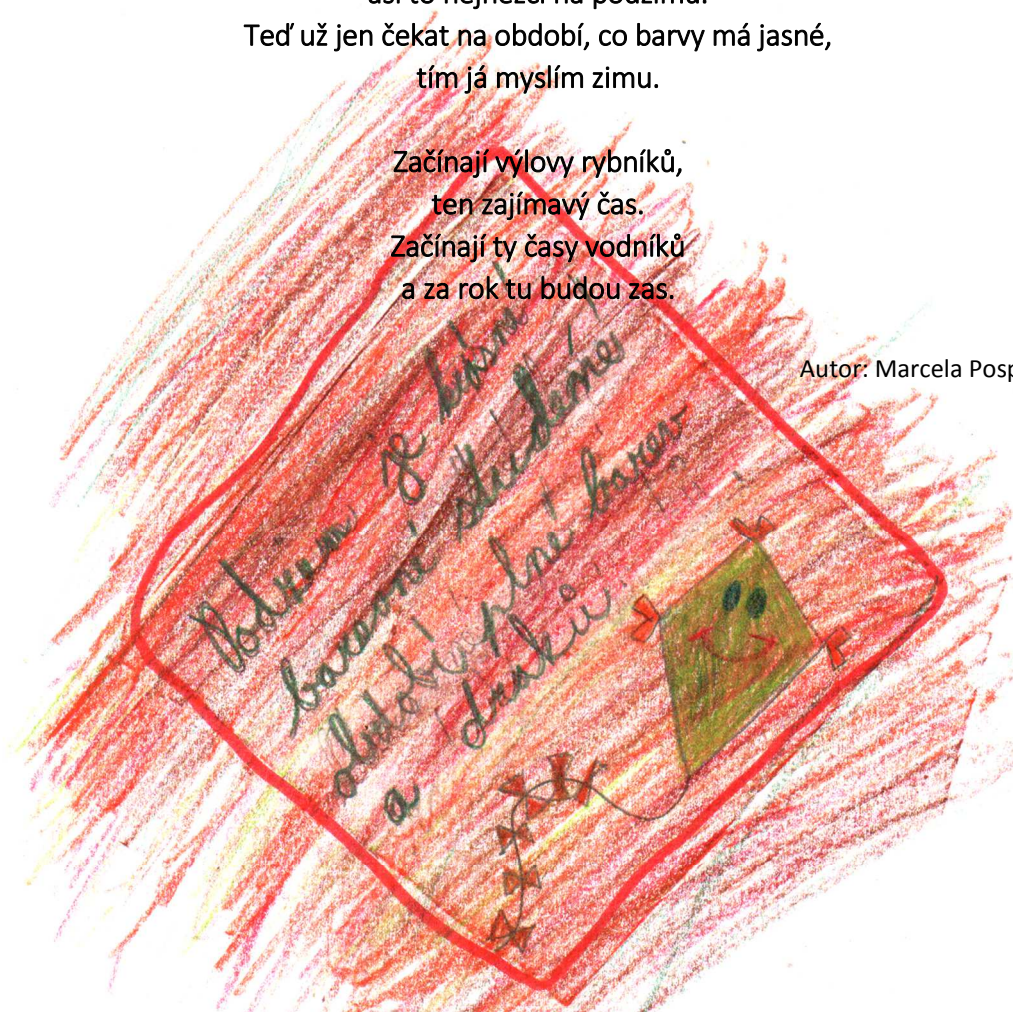 asi to nejhezčí na podzimu.
Teď už jen čekat na období, co barvy má jasné,
tím já myslím zimu.
Začínají výlovy rybníků,
ten zajímavý čas.
Začínají ty časy vodníků
a za rok tu budou zas.
Autor: Marcela Posp
Podzim je krásné
barevné studené
období plné barev
a draků.